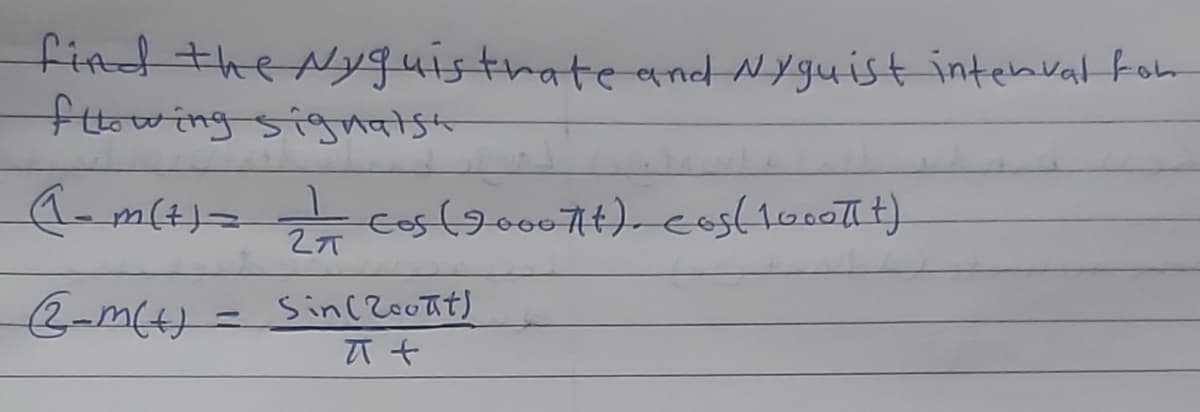 find the Nyquist rate and Nyquist interval for
fllowing signals:
1- m(t) = 1/2π cos(9000πt). cos(1000πt)
2- m(t) = sin(200πt)/πt